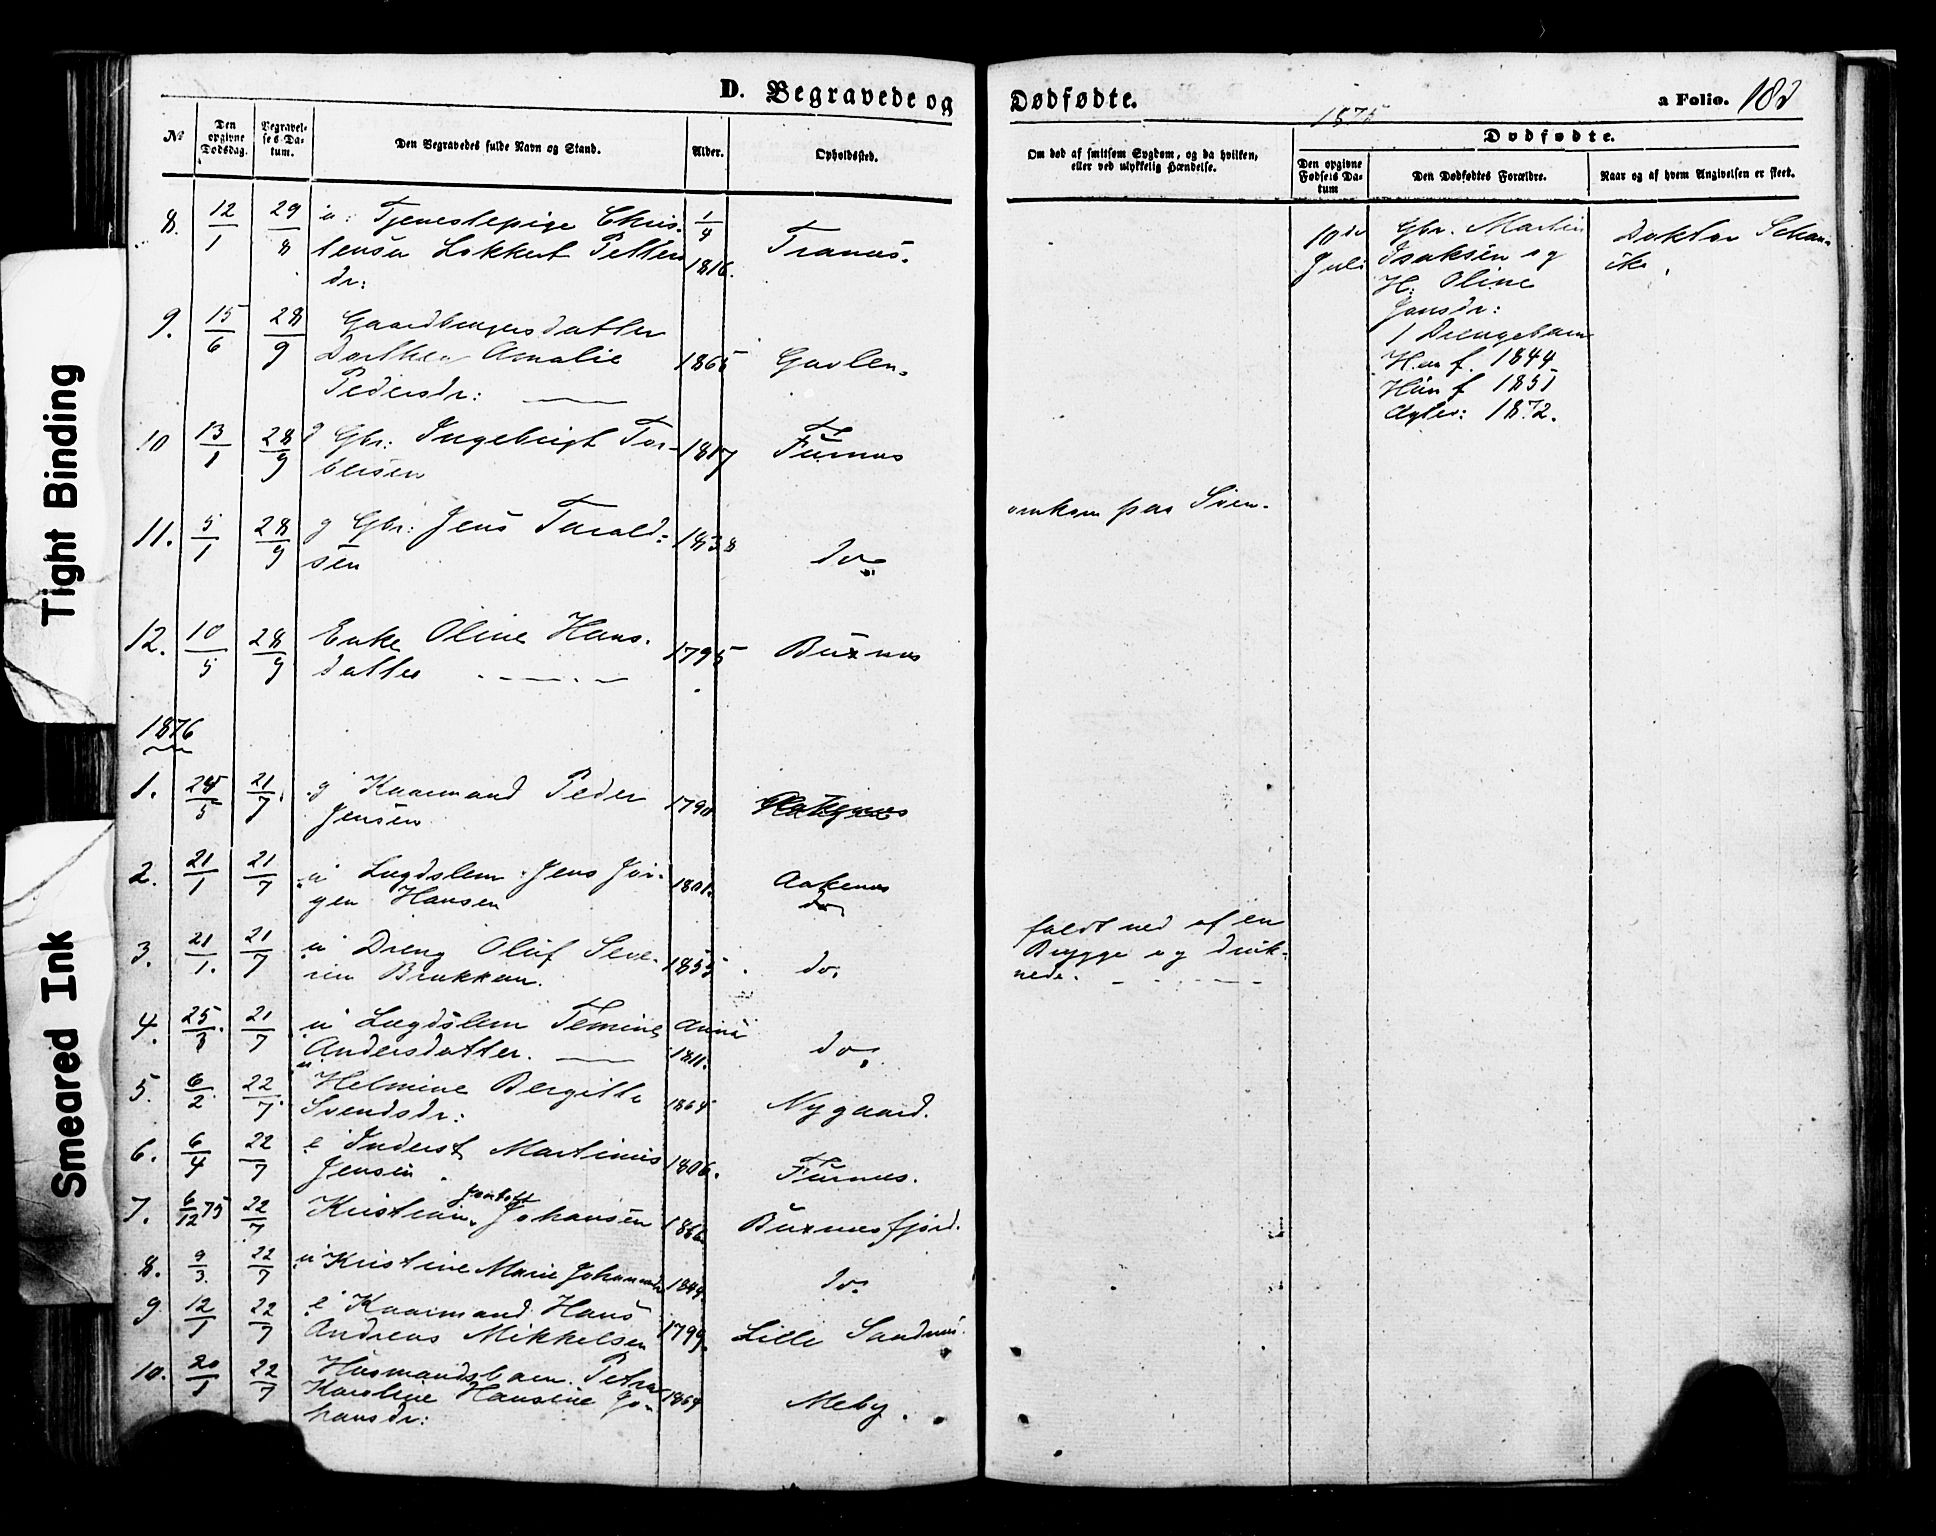 D. Begravede og Dødfødte.
a Folio. 182
1875
№
Den opgivne Dødsdag.
Begravelses Datum.
Den Begravedes fulde Navn og Stand.
Alder.
Opholdssted.
Om død af smitsom Sygdom, og da hvilken,
eller ved ulykkelig Hændelse.
Dødfødte.
Den opgivne Fødsels Datum
Den Dødfødtes Forældre.
Naar og af hvem Angivelsen er skeet.
8. 12/1 29/8 u: Tjenestepige Chris-
tensa Lokkert Petters
dr: 1816. Tranes.
9. 15/6 28/9 Gaardbrugersdatter
Dorthea Amalie 1865 Gavlen.
Pedersdr:
10 13/1 28/9 g Gbr: Ingebrigt Tor-
bersen 1817 Furnes
11. 5/1 28/9 g Gbr: Jens Tarald-
sen 1838 do
omkom paa Søen.
12. 10/5 28/9 Enke Oline Hans-
datter 1795 Buxnes
10de
Juli
Gbr. Martin
Isaksen og
H: Oline
Jensdr:
1 Drengebarn
Han f. 1844
Hun f 1851
Ægtev: 1872.
Doktor
1876
1. 5 21/7 g Kaarmand Peder
Jensen 1790
2. 21/1 21/7 u Lægdslem Jens Jør-
gen Hansen 1801. Aakenes
do
3. 21/1. 21/7 u Dreng Oluf Seve-
rin 1855 do.
faldt ned af en
Brygge og druk-
nede.
4. 25/3 21/7 u Lægdslem
Andersdatter. 1811. do.
5. 6/2 22/7 u Helmine Bergitte
Svendsdr: 1865 Nygaard.
6. 6/4 22/7 e Inderst Martinus
Jensen 1806. Furnes.
7. 6/12 75 22/7 Kristian Johansen 1866. Buxnesfjord.
8. 9/3 22/7 u Kristine Marie 1849. do.
9 12/1 22/7 e Kaarmand Hans
Andreas Mikkelsen 1799. Lille Sandnes.
10. 20/1 22/7 Husmandsbarn Petra
Karoline Hansine Jo-
hansdr: 1864 Meby.
Tight Binding
Smeared Ink